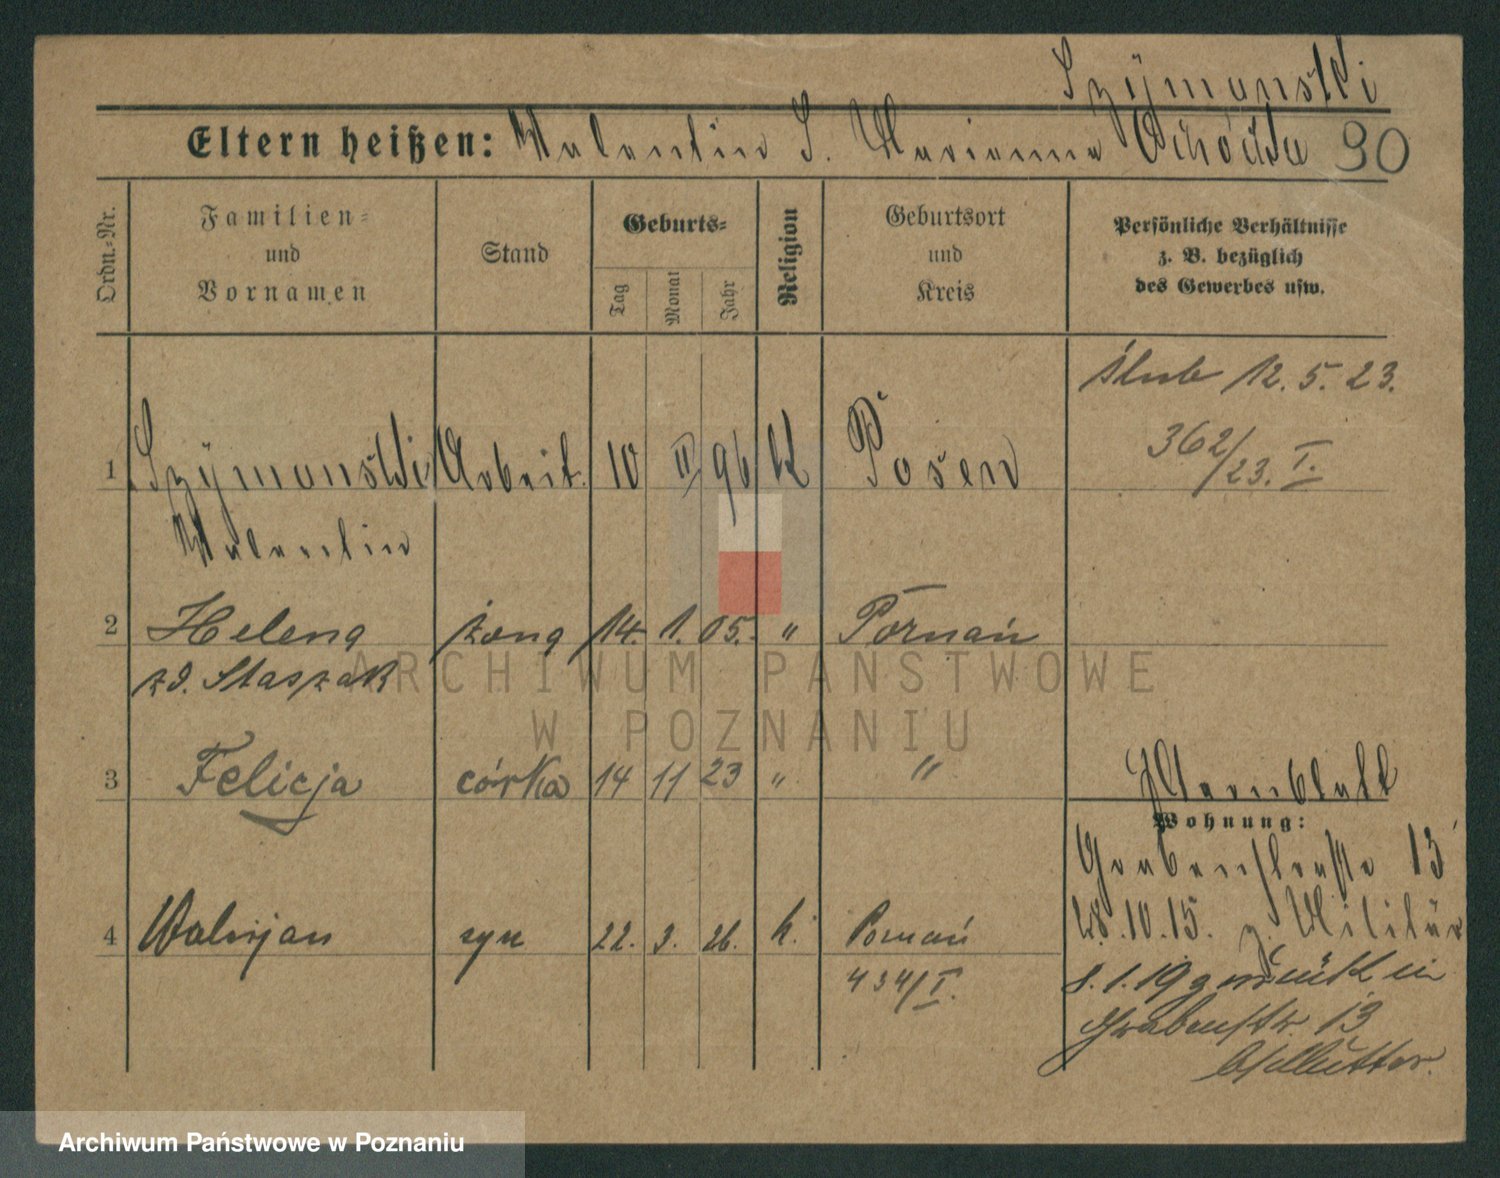 Szÿmanski
Eltern heißen: Valentin S. Marianna
90
Ordn.-Nr.
Familien-
und
Vornamen
Stand
Geburts-
Tag
Monat
Jahr
Religion
Geburtsort
und
Kreis
Persönliche Verhältnisse
z. B. bezüglich
des Gewerbes usw.
ślub 12.5.23.
362/23. I.
1 Szÿmanski Arbeit. 10 II 96 k Posen
Valentin
2 Helena żona 14. 1. 05. " Poznań
zd. Staszak
3 Felicja córka 14 11 23 " "
Stammblatt
Wohnung:
Grabenstraße 13
4 Walerjan syn 22. 3. 26. k. Poznań
28.10.15. z. Militär
434/I.
8.1.19 zurück in
Grabenstr. 13
b/Mutter.
ARCHIWUM PAŃSTWOWE
W POZNANIU
Archiwum Państwowe w Poznaniu